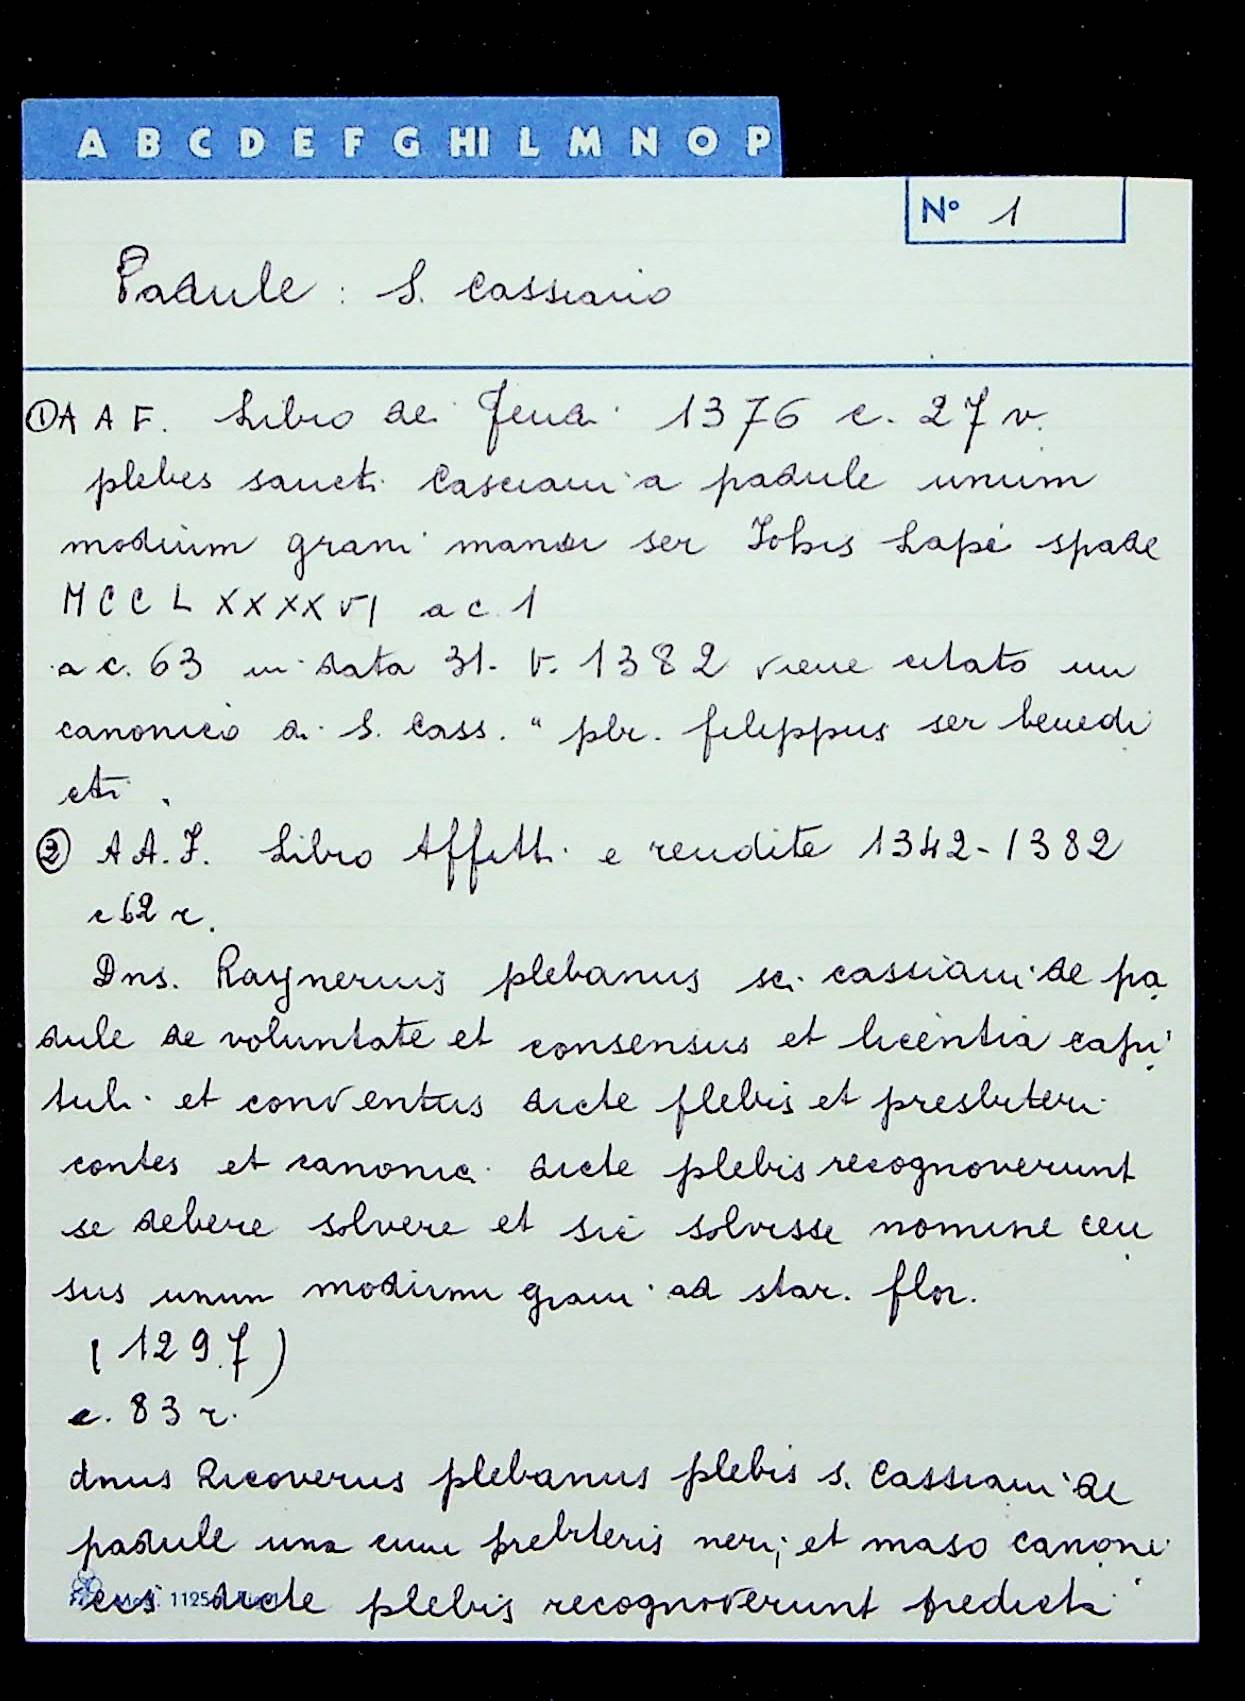 A B C D E F G HI L M N O P
N° 1
Padule : S. Cassiano
① A A F. Libro dei Feudi 1376 c. 27 v.
plebes sancti Casciani a padule unum
modium grani manu ser Johis Lapi spade
MCCLXXXXVI a c. 1
a c. 63 in data 31. V. 1382 viene citato un
canonico di S. Cass. " pbr. filippus ser benedi
cti .
② A A. F. Libro Affitti e rendite 1342-1382
c 62 r.
Dns. Raynerius plebanus sci cassiani de pa
dule de voluntate et consensus et licentia capi
tuli et conventus dicte plebis et presbiteri
contes et canonici dicte plebis recognoverunt
se debere solvere et sic solvisse nomine cen
sus unum modium grani ad star. flor.
( 1297 )
c. 83 r.
dnus Ricoverus plebanus plebis s. Cassiani de
padule una cum prebiteris neri, et maso canoni
cis dicte plebis recognoverunt predicti